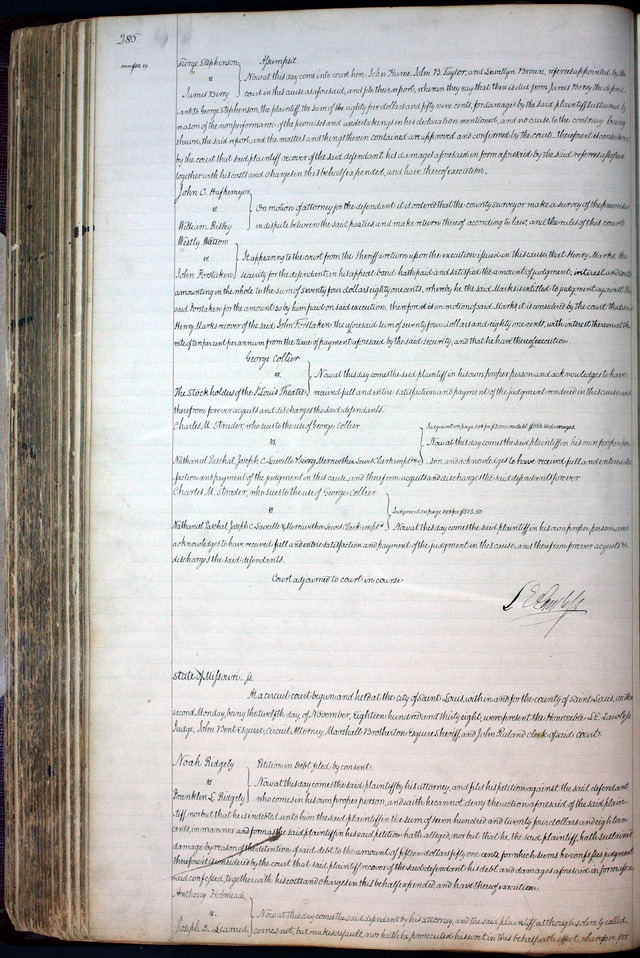 286
George Stephenson } Assumpsit
vs } Now at this day come into court hon. John Hume, John B. Taylor, and Lewellyn Brown, referees appointed by the
James Berry } court in this cause as aforesaid, and file their report, wherein they say that there is due from James Berry the defend-
ant to George Stephenson, the plaintiff, the sum of the eighty five dollars and fifty nine cents, for damages by the said plaintiff sustained, by
reason of the nonperformance of the promises and undertakings in his declaration mentioned, and no cause to the contrary being
shewn, the said report, and the matters and things therein contained are approved and confirmed by the court. Therefore it is considered
by the court that said plaintiff recover of the said defendant his damages aforesaid in form aforesaid by the said referees assessed
together with his costs and charges in this behalf expended, and have thereof execution.
John C. Hafkemeyer }
vs } On motion of attorney for the defendant: it is ordered that the county surveyor make a survey of the premises
William Risby } in dispute between the said parties, and make return thereof according to law, and the rules of this court
Westly Watson }
vs } It appearing to the court from the Sheriff's return upon the execution issued in this cause that Henry Marks, the
John Forstaken } security for the defendant in his appeal bond hath paid and satisfied the amount of judgment, interest and costs
amounting in the whole to the sum of seventy four dollars eighty one cents, whereby he the said Marks is entitled to judgment against the
said Forstaken for the amount so by him paid on said execution, therefore it is on motion of said Marks it is considered by the court that said
Henry Marks recover of the said John Forstaken the aforesaid sum of seventy four dollars and eighty one cents, with interest thereon at the
rate of ten per cent per annum from the time of payment aforesaid by the said security, and that he have thereof execution.
George Collier }
vs. } Now at this day comes the said plaintiff in his own proper person and acknowledges to have
The Stockholders of the St Louis Theatre } received full and entire satisfaction and payment of the judgment rendered in this cause and
therefrom forever acquits and discharges the said defendants.
Charles M. Strader, who sues to the use of George Collier } Judgment on page
vs } Now at this day comes the said plaintiff in his own proper per-
Nathaniel Paschal, Joseph C. Lavielle & Georg Meriwether Lewis Clark impl'd } son, and acknowledges to have received full and entire satis-
faction and payment of the judgment in this cause, and therefrom acquits and discharges the said defendants forever
Charles M. Strader, who sues to the use of George Collier }
vs } Judgment on page
Nathaniel Paschal, Joseph C. Lavielle & Meriwether Lewis Clark impl'd } Now at this day comes the said plaintiff in his own proper person, and
acknowledges to have received full and entire satisfaction and payment of the judgment in this cause, and therefrom forever acquits &
discharges the said defendants.
Court adjourned to court in course
L E Lawless
State of Missouri, ss.
At a circuit court begun and held at the city of Saint Louis, within and for the county of Saint Louis, on the
second Monday, being the twelfth day, of November, Eighteen hundred and thirty eight; were present the Honorable L.E. Lawless
Judge, John Bent Esquire, Circuit Attorney, Marshall Brotherton Esquire Sheriff, and John Ruland clerk of said court.
Noah Ridgely } Petition in Debt filed by consent.
vs } Now at this day comes the said plaintiff by his attorney, and files his petition against the said defendant
Franklin L. Ridgely } who comes in his own proper person, and saith he cannot deny the action aforesaid of the said plain-
tiff, nor but that he is indebted unto him the said plaintiff in the sum of seven hundred and twenty four dollars and eighteen
cents, in manner and form as the said plaintiff in his said petition hath alleged, nor but that he, the said plaintiff, hath sustained
damage by reason of the detention of said debt to the amount of fifteen dollars fifty one cents, for which seems he confesses judgment;
therefore it is considered by the court that said plaintiff recover of the said defendant his debt and damages aforesaid in form afore-
said confessed, together with his costs and charges in this behalf expended, and have thereof execution.
Anthony Holmead }
vs } Now at this day comes the said defendant by his attorney, and the said plaintiff although solemnly called,
Joseph D. Learned } comes not, but makes default, nor hath he prosecuted his writ in this behalf with effect, therefore for